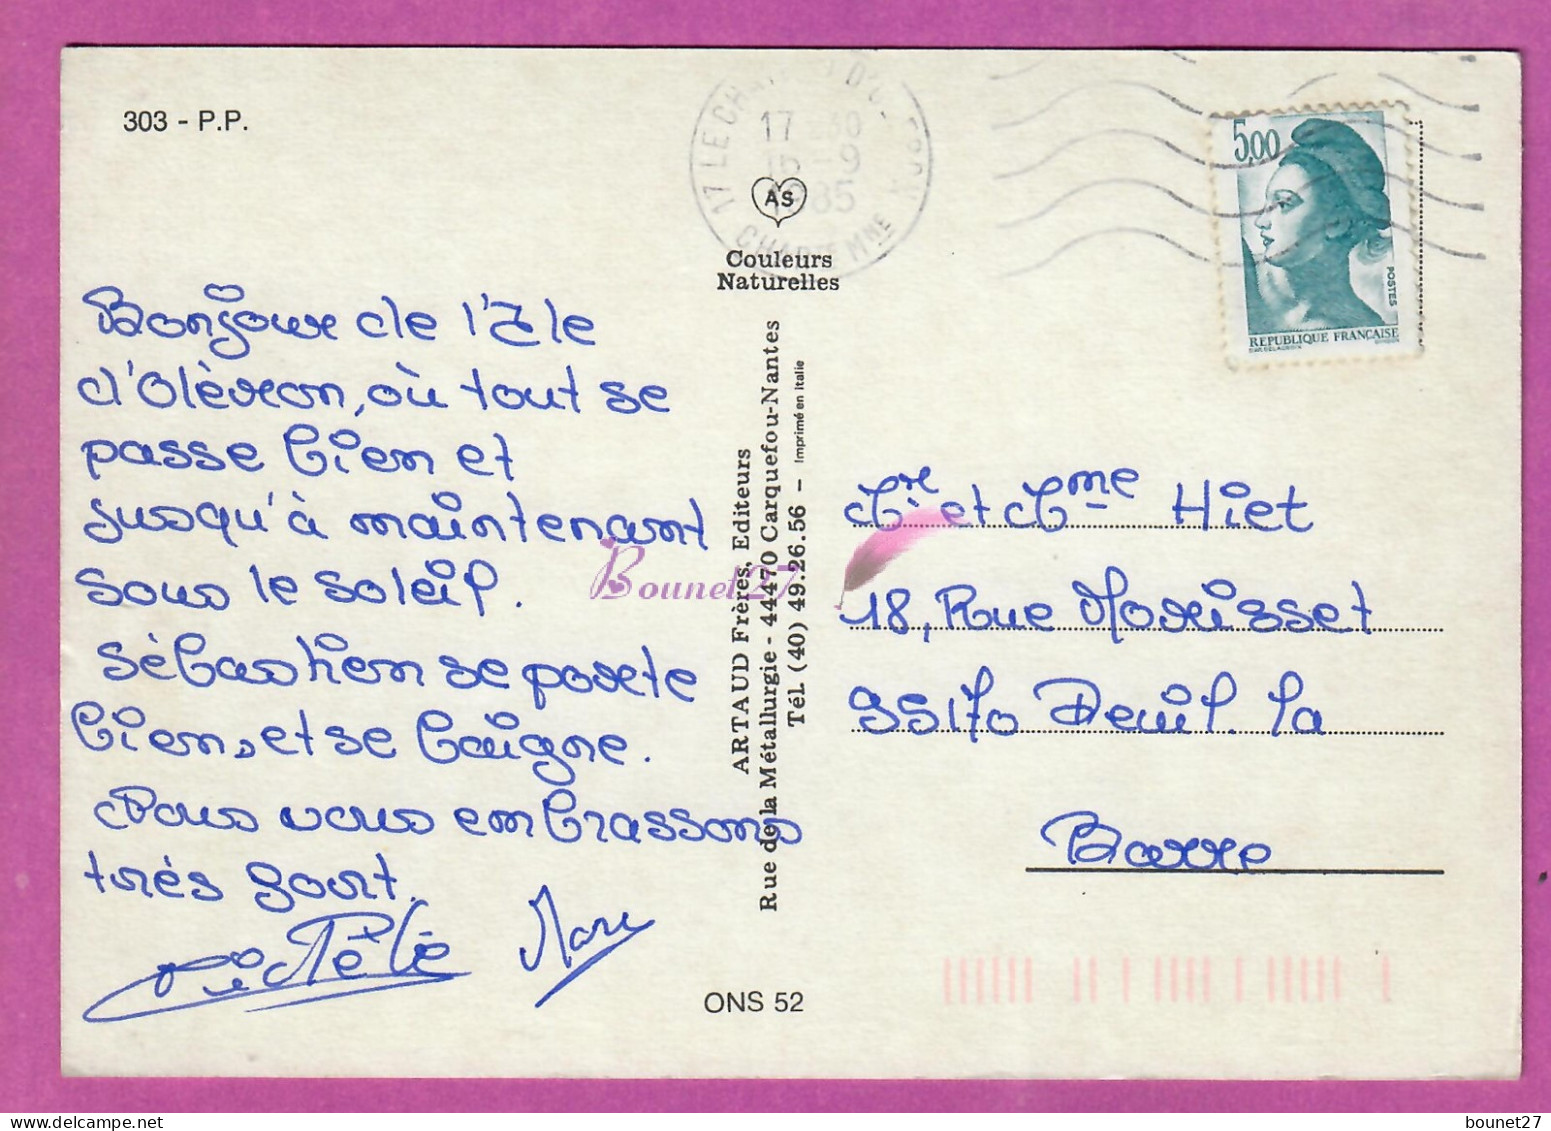 303 - P.P.
17 LE CH
D'O
17
15 - 9
1985
CHARTE MME
AS
Couleurs
Naturelles
5,00
POSTES
REPUBLIQUE FRANÇAISE
Bonjour de l'Ile
d'Olèron, où tout se
passe bien et
jusqu'à maintenant
sous le soleil.
Sèbastien se porte
bien, et se baigne.
Nous vous embrassons
très fort.
Marc
ARTAUD Frères, Editeurs
Rue de la Métallurgie - 44470 Carquefou-Nantes
Tél. (40) 49.26.56 - Imprimé en Italie
Bounet27
et Hiet
18, Rue Morisset
95170 Deuil. la
Barre
ONS 52
bounet27